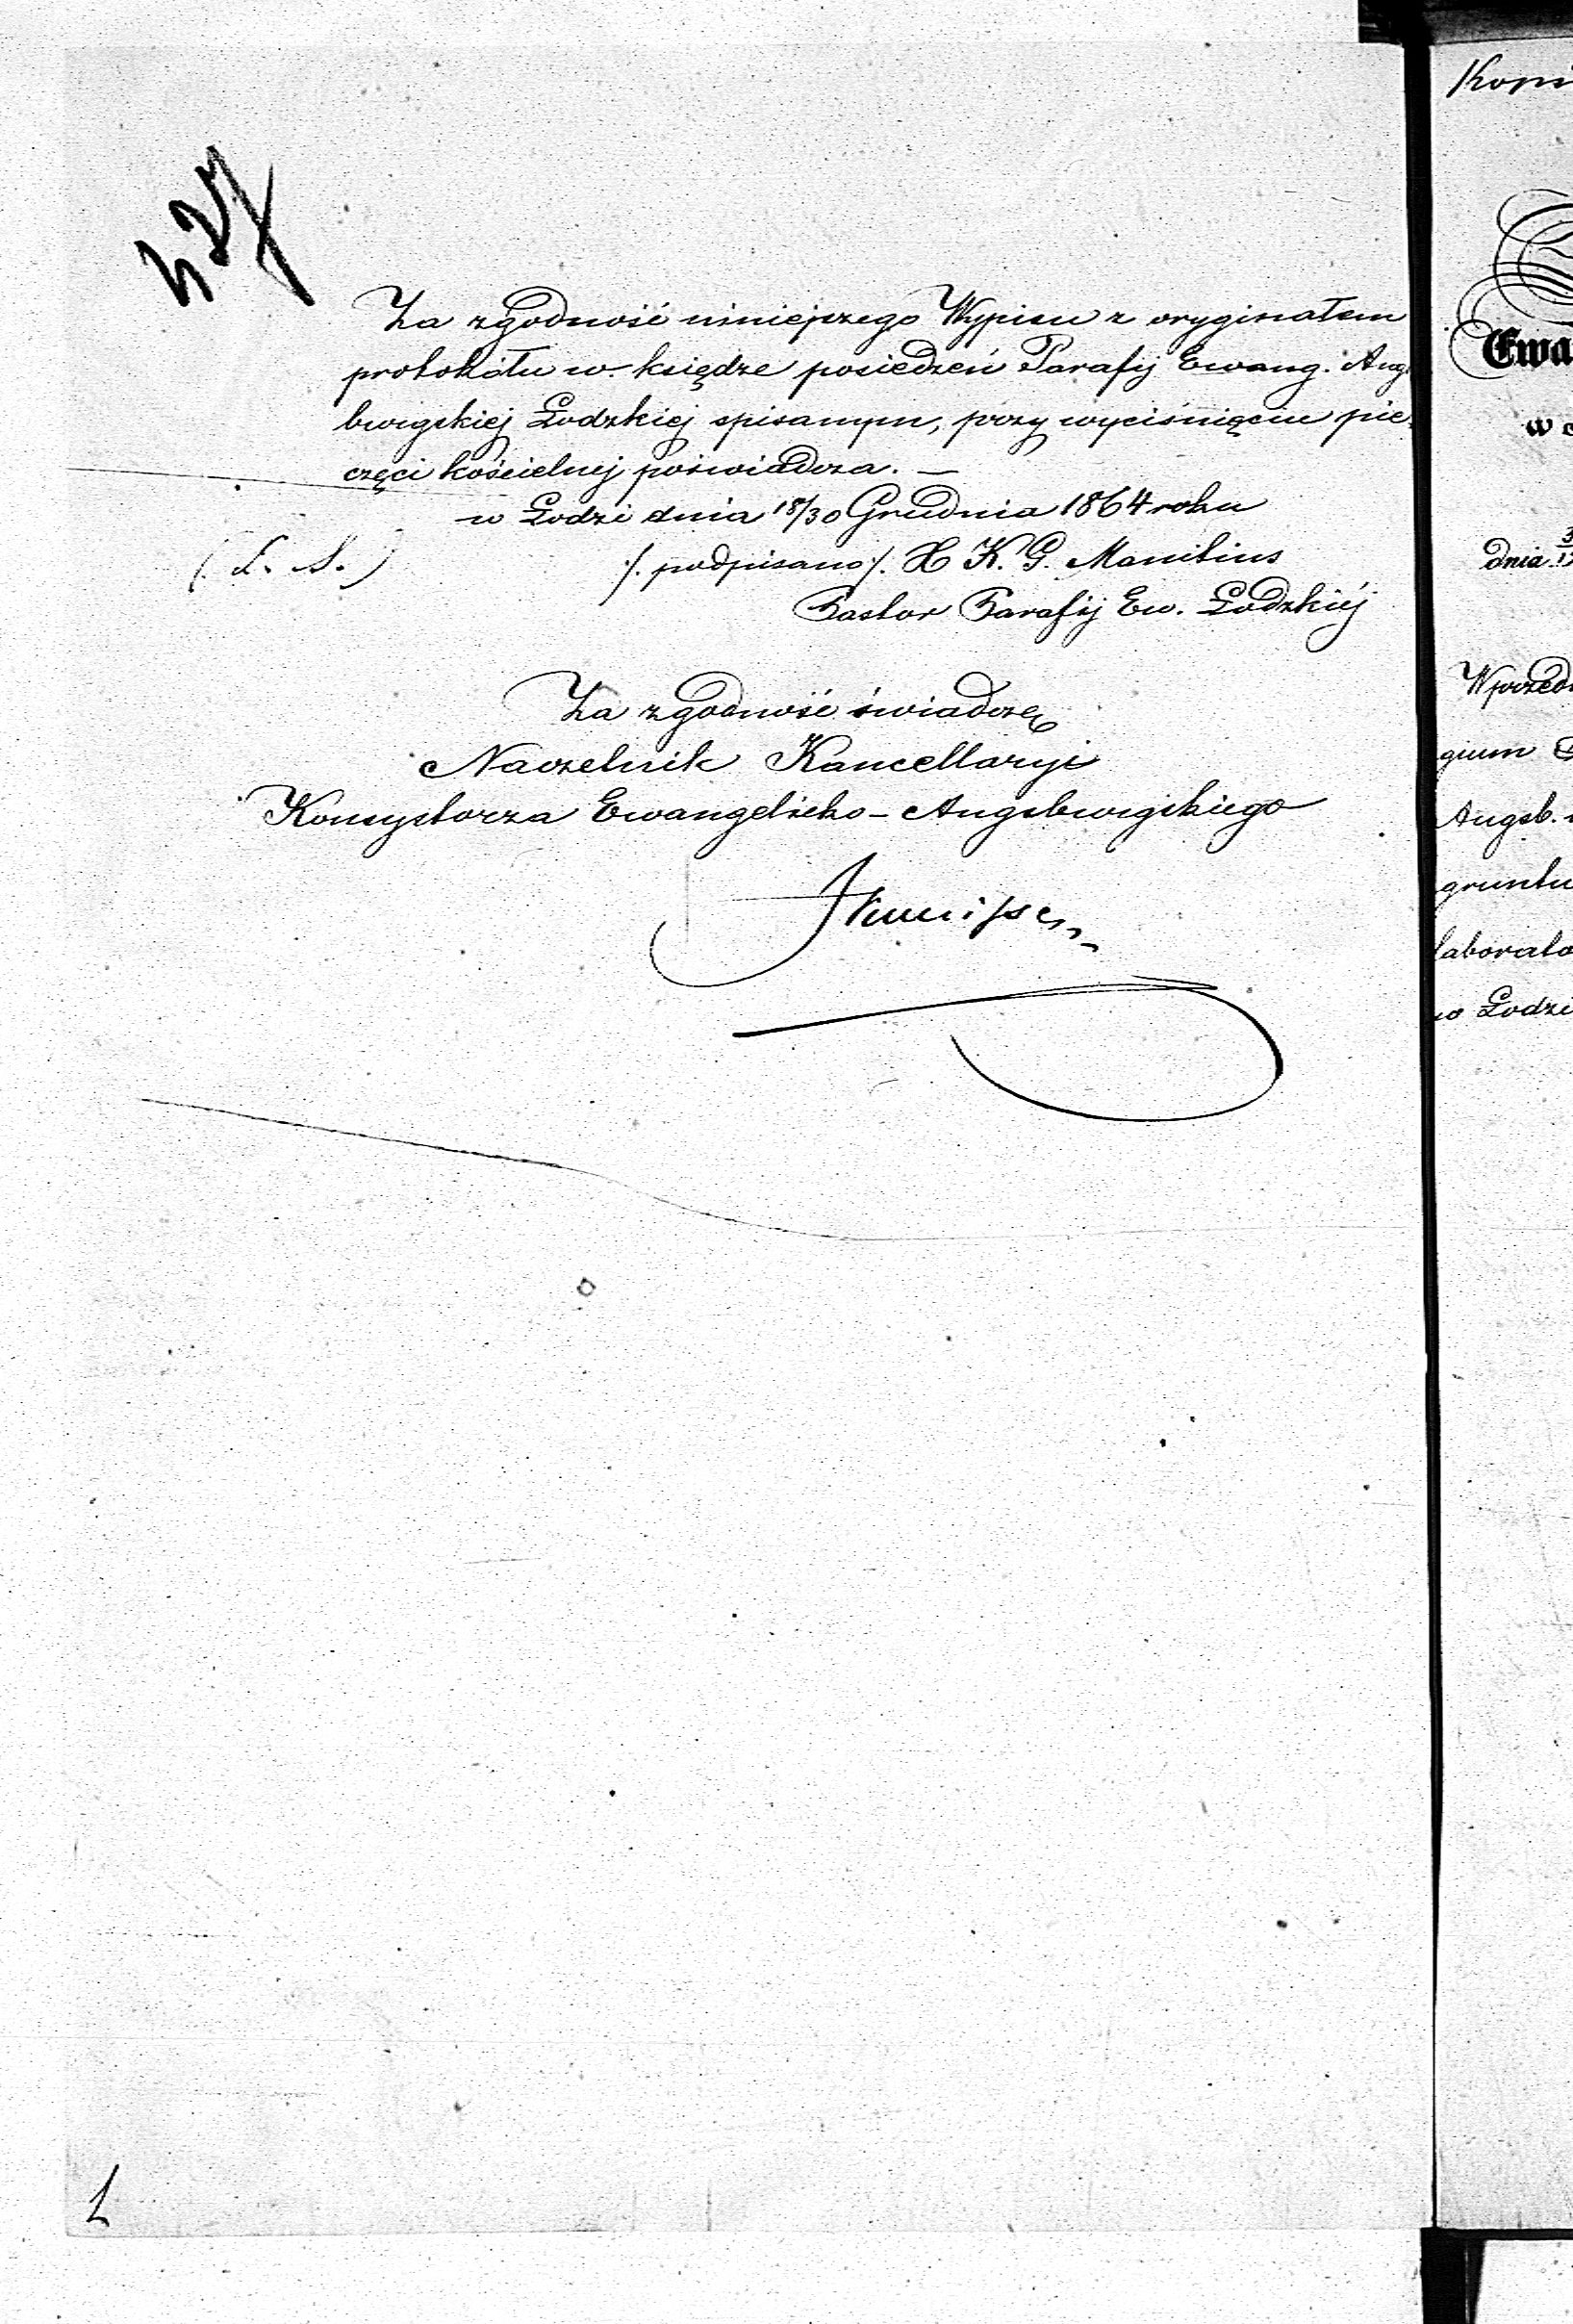 427
Za zgodność niniejszego Wypisu z oryginałem
protokółu w księdze posiedzeń Parafij Ewang. Augs
burgskiej Łodzkiej spisanym, przy wyciśnięciu pie-
częci kościelnej poświadcza. —
w Łodzi dnia 18/30 Grudnia 1864 roku
(L. S.) /. podpisano /. X K. G. Manitius
Pastor Parafij Ew. Łodzkiéj
Za zgodność świadczę
Naczelnik Kancellaryi
Konsystorza Ewangelicko-Augsburgskiego
1
Kopi
Ewa
w
dnia
W przed
gium
Augsb.
gruntu
laborato
w Łodzi